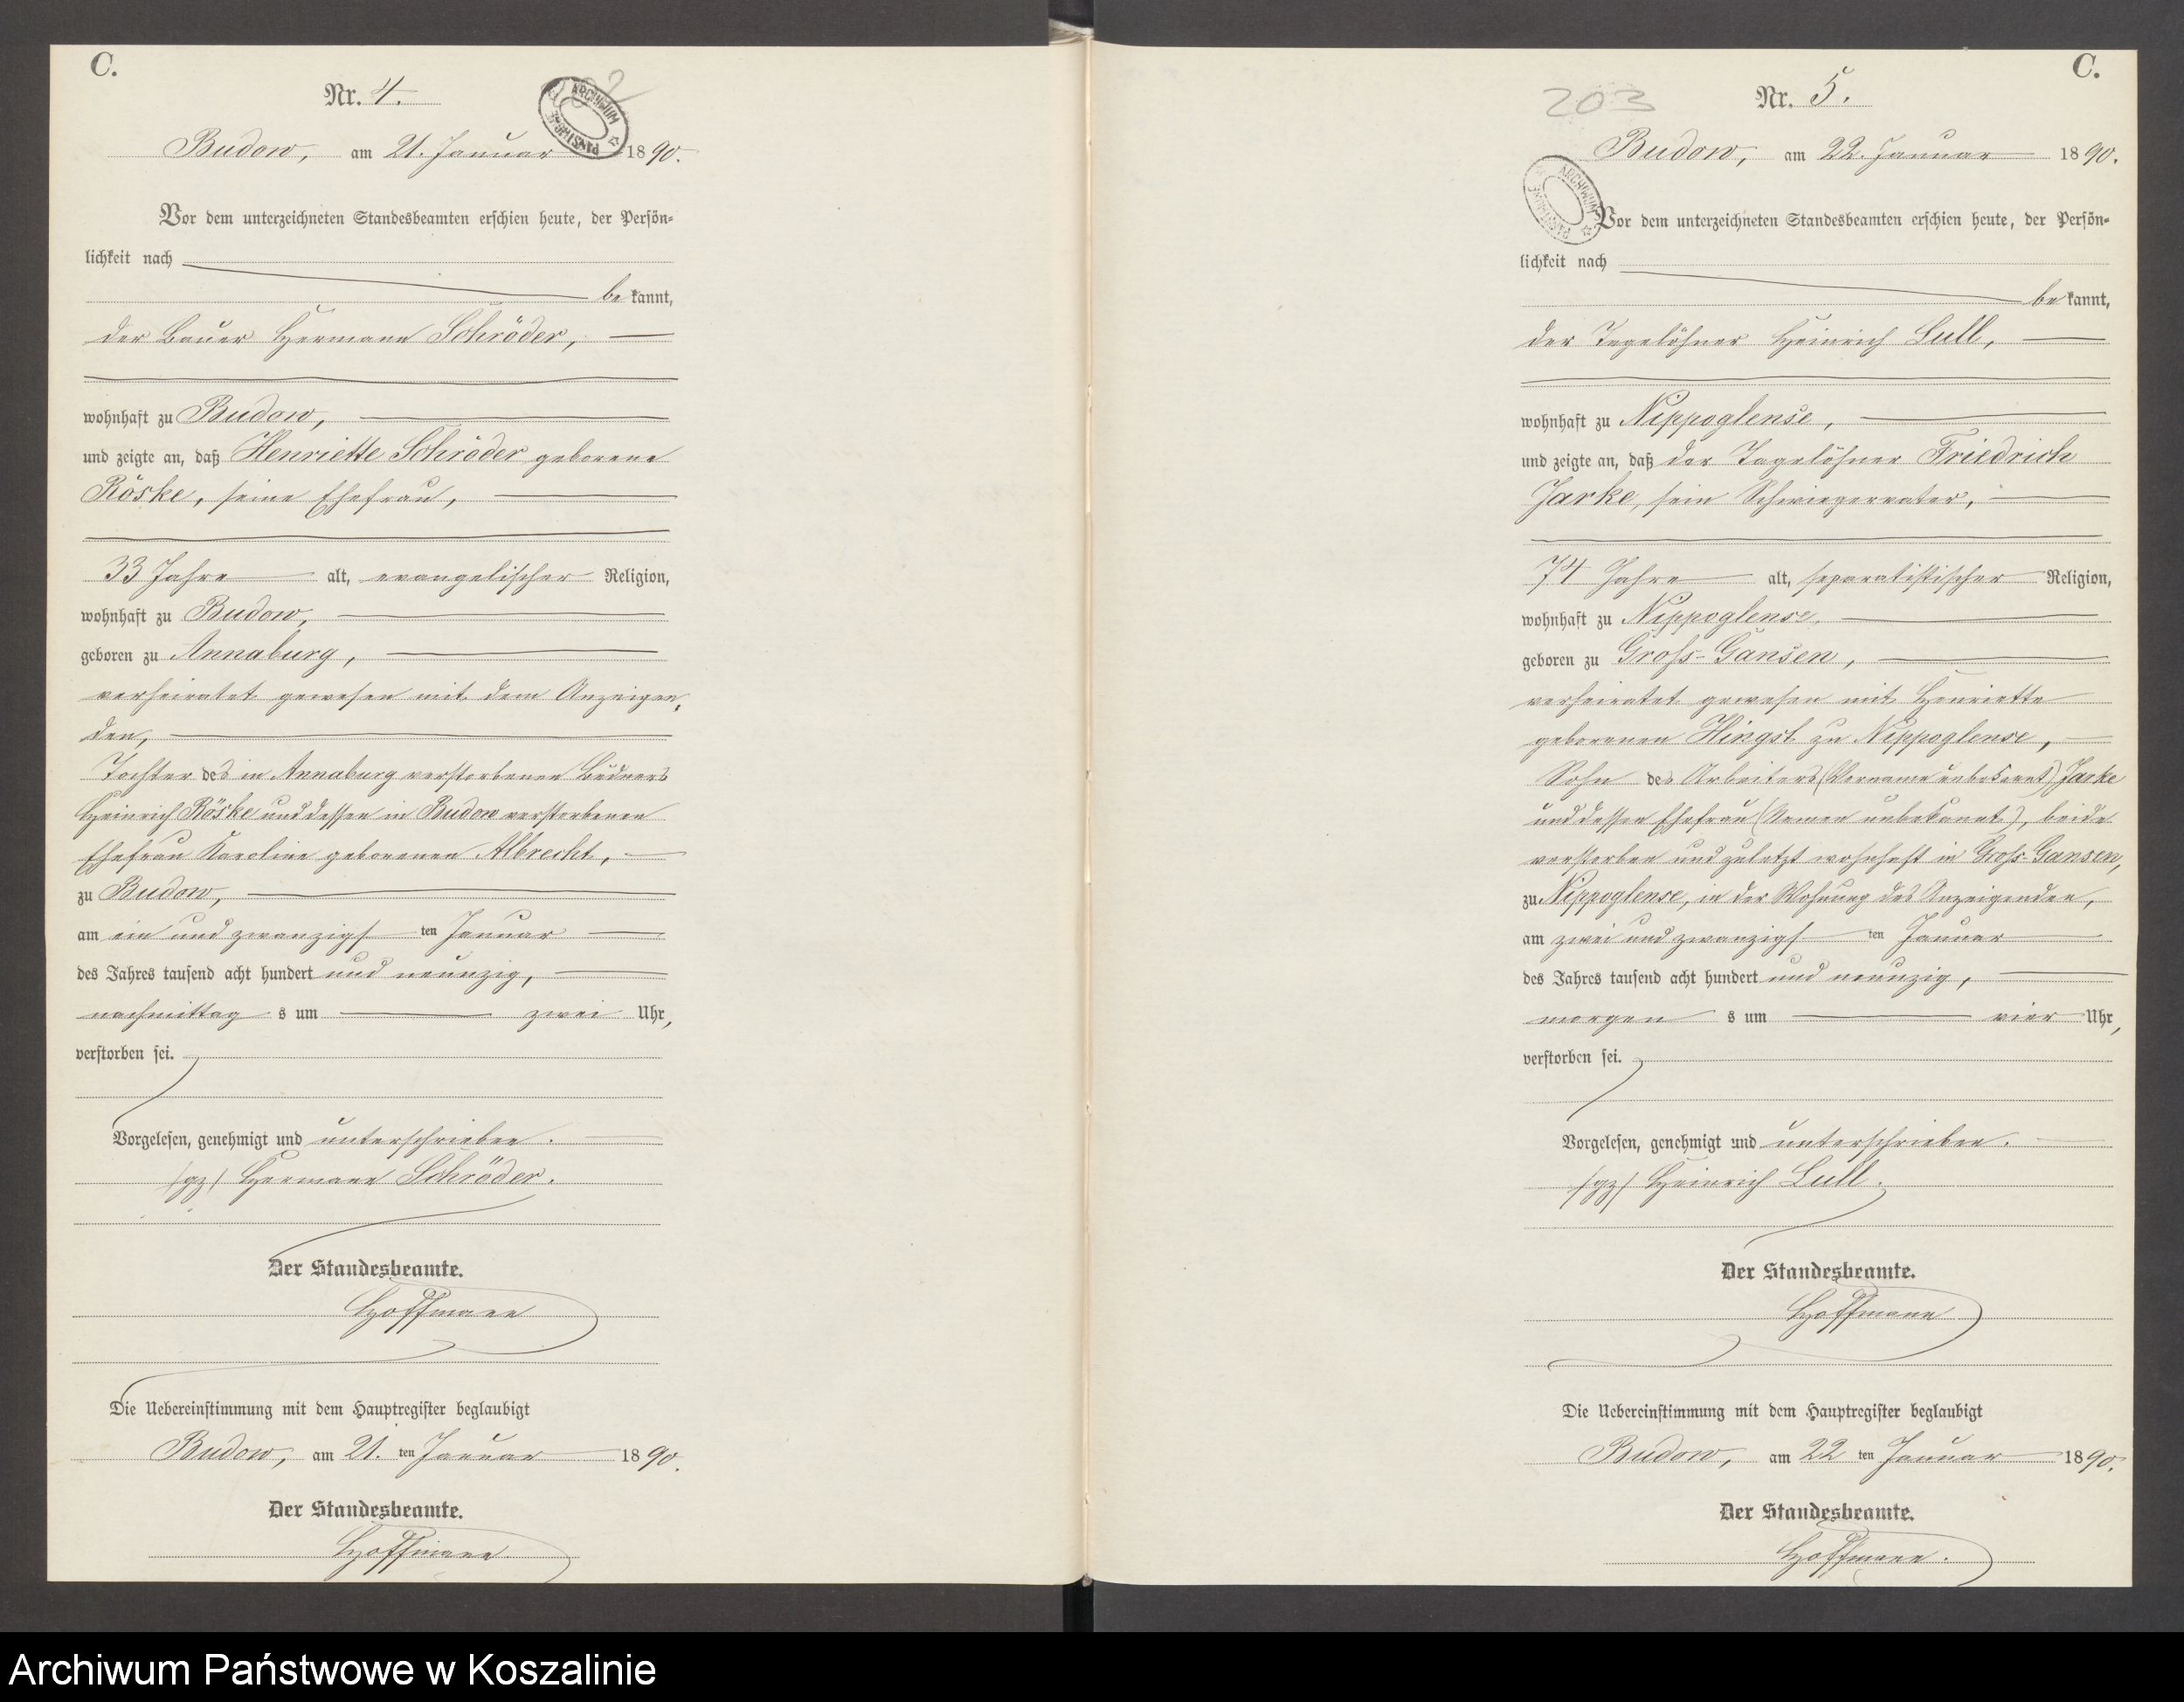 C.
Nr. 4.
202
ARCHIWUM PAŃSTWOWE
Budow, am 21. Januar 1890.
Vor dem unterzeichneten Standesbeamten erschien heute, der Persön-
lichkeit nach
bekannt,
der Bauer Hermann Schröder,
wohnhaft zu Budow,
und zeigte an, daß Henriette Schröder geborene
Röske, seine Ehefrau,
33 Jahre alt, evangelischer Religion,
wohnhaft zu Budow,
geboren zu Annaburg,
verheiratet gewesen mit dem Anzeigen-
den,
Tochter des in Annaburg verstorbenen Büdners
Heinrich Röske und dessen in Budow verstorbenen
Ehefrau Karoline geborenen Albrecht,
zu Budow,
am ein und zwanzigsten Januar
des Jahres tausend acht hundert und neunzig,
nachmittags um zwei Uhr,
verstorben sei.
Vorgelesen, genehmigt und unterschrieben.
/gz/ Hermann Schröder.
Der Standesbeamte.
Hoffmann
Die Uebereinstimmung mit dem Hauptregister beglaubigt
Budow, am 21. ten Januar 1890.
Der Standesbeamte.
Hoffmann.
C.
203
Nr. 5.
ARCHIWUM PAŃSTWOWE
Budow, am 22. Januar 1890.
Vor dem unterzeichneten Standesbeamten erschien heute, der Persön-
lichkeit nach
bekannt,
der Tagelöhner Heinrich Lull,
wohnhaft zu Nippoglense,
und zeigte an, daß der Tagelöhner Friedrich
Jarke, sein Schwiegervater,
74 Jahre alt, separatistischer Religion,
wohnhaft zu Nippoglense,
geboren zu Gross-Gansen,
verheiratet gewesen mit Henriette
geborenen Hingst zu Nippoglense,
Sohn des Arbeiters (Vorname unbekannt) Jarke
und dessen Ehefrau (Namen unbekannt), beide
verstorben und zuletzt wohnhaft in Gross-Gansen,
zu Nippoglense, in der Wohnung des Anzeigenden,
am zwei und zwanzigsten Januar
des Jahres tausend acht hundert und neunzig,
morgens um vier Uhr,
verstorben sei.
Vorgelesen, genehmigt und unterschrieben.
/gz/ Heinrich Lull.
Der Standesbeamte.
Hoffmann
Die Uebereinstimmung mit dem Hauptregister beglaubigt
Budow, am 22 ten Januar 1890.
Der Standesbeamte.
Hoffmann.
Archiwum Państwowe w Koszalinie